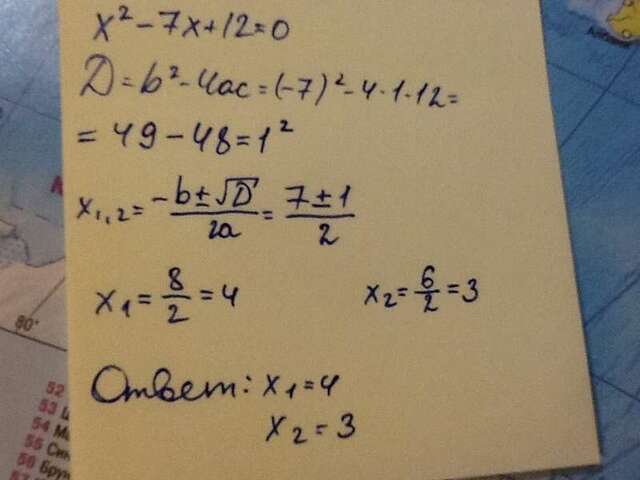 x² - 7x + 12 = 0
D = b² - 4ac = (-7)² - 4·1·12 =
= 49 - 48 = 1²
x₁,₂ = (-b ± √D)/2a = (7 ± 1)/2
x₁ = 8/2 = 4 x₂ = 6/2 = 3
Ответ: x₁ = 4
x₂ = 3
80°
52
53
54
55
56
57